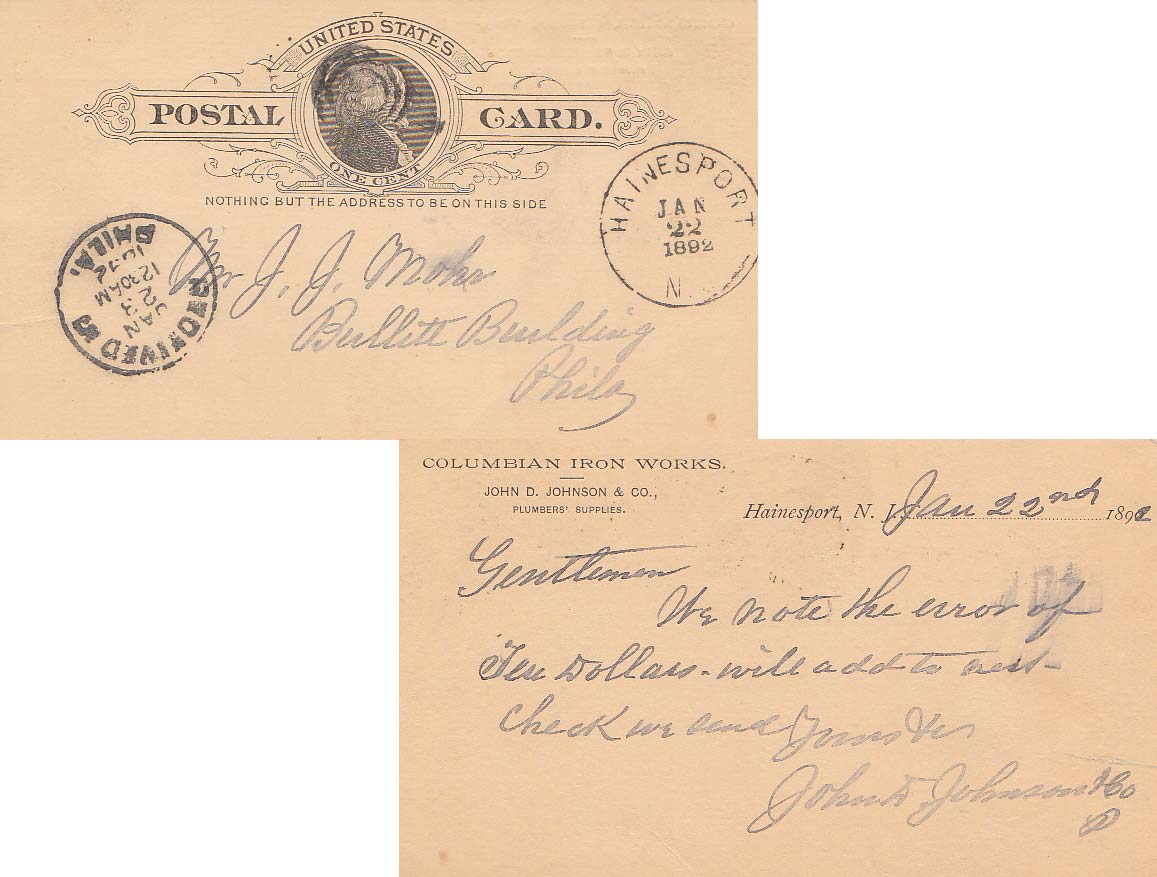 UNITED STATES
POSTAL CARD.
ONE CENT
NOTHING BUT THE ADDRESS TO BE ON THIS SIDE
HAINESPORT
JAN
22
1892
N.
RECEIVED
JAN
23
1230AM
1892
PHILA.
Mr J. J. Mohr
Bullitt Building
Phila
COLUMBIAN IRON WORKS.
JOHN D. JOHNSON & CO.,
PLUMBERS' SUPPLIES.
Hainesport, N. J. Jan 22nd 1892
Gentlemen
We note the error of
Ten Dollars - will add to next
check we send Yours &c
John D. Johnson & Co